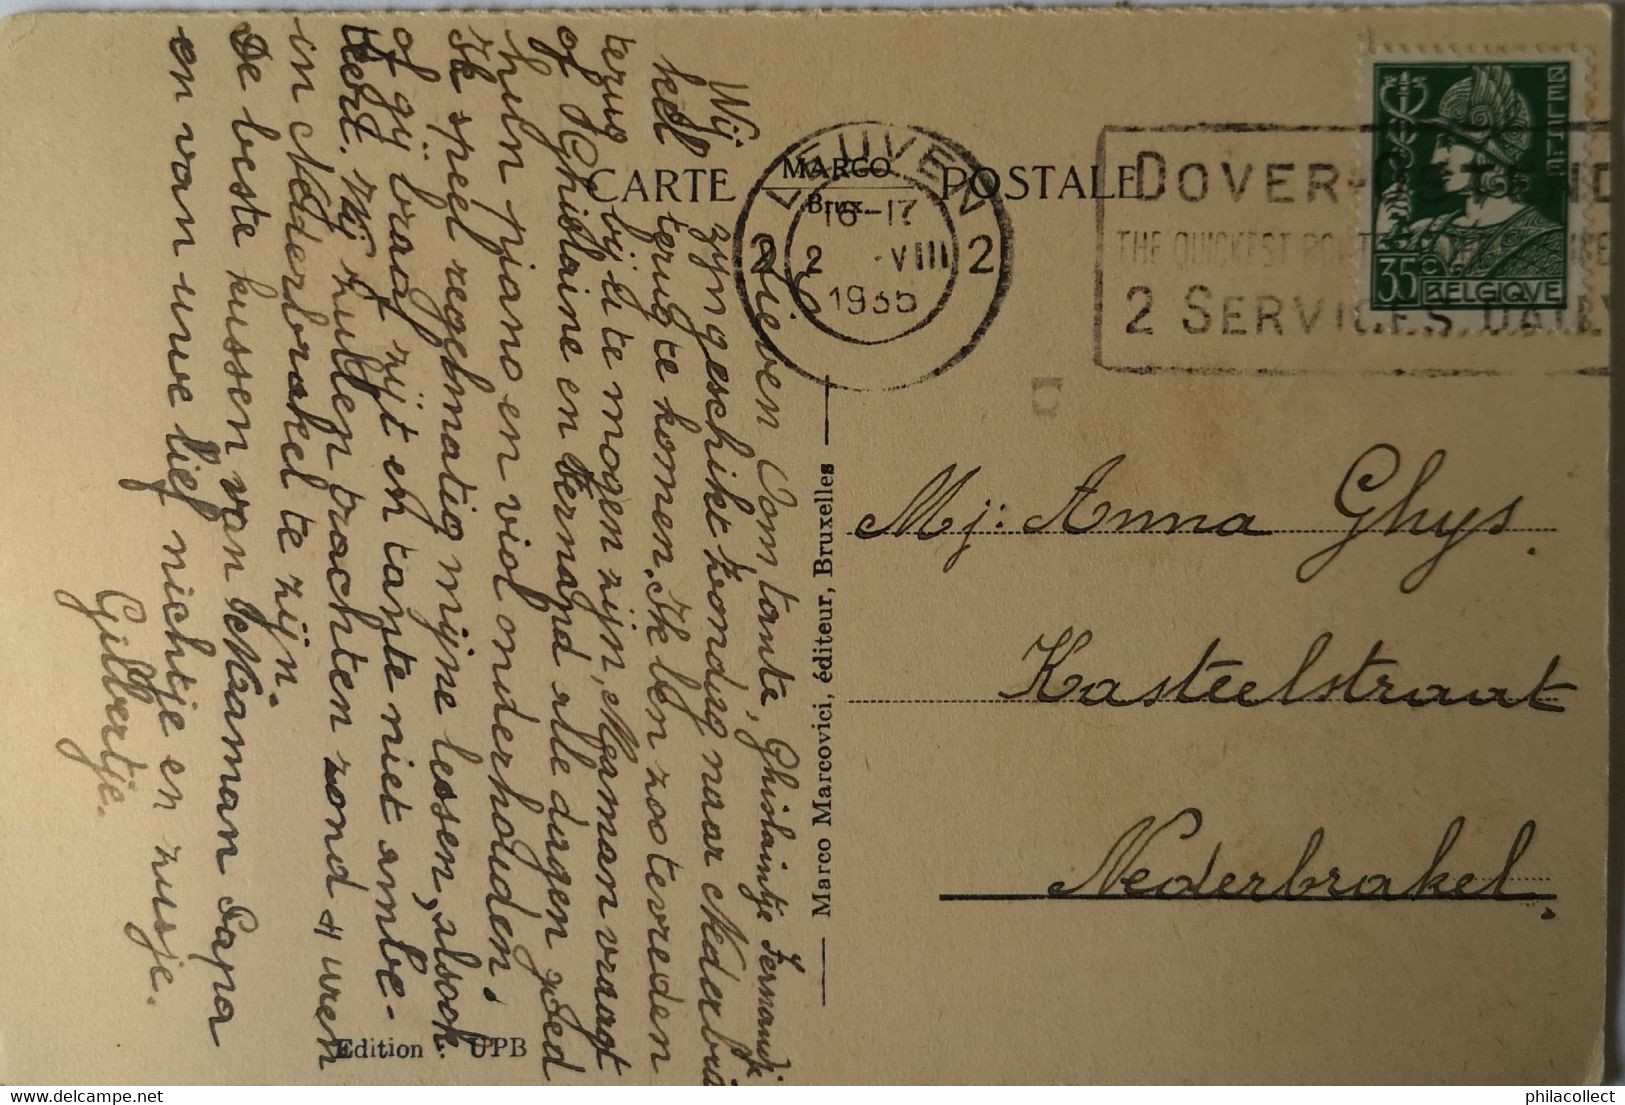 CARTE POSTALE
MARCO
Brux.
LEUVEN
16-17
2 2 VIII 2
1935
DOVER-OSTEND
THE QUICKEST
2 SERVICES DAILY
BELGIE
35c BELGIQVE
Mj: Anna Ghys.
Kasteelstraat
Nederbrakel.
Marco Marcovici, éditeur, Bruxelles
Edition : UPB
Lieben Oom, tante, Ghislaintje Fernandje
Wij zijn geschikt zondag naar Nederbra
kel terug te komen, Ik ben zoo tevreden
terug bij u te mogen zijn, Maman vraagt
of Ghislaine en Fernand alle dagen goed
hun piano en viool onderhouden!
Ik speel regelmatig mijne lessen, alsook
of gij braaf zijt en tante niet ambe-
teert. Wij zullen trachten rond 4 uren
in Nederbrakel te zijn.
De beste kussen van Maman Papa
en van uwe lief nichtje en zusje.
Gilbertje.
philacollect
philacollect